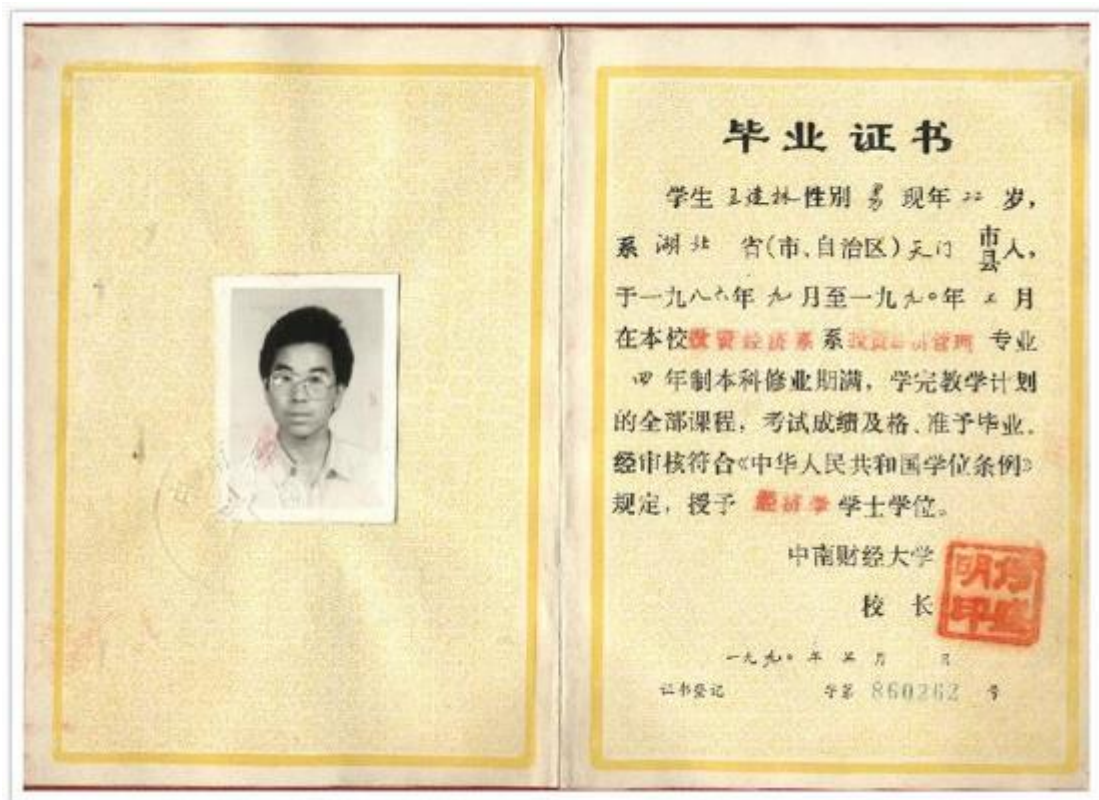 毕业证书
学生 王建林 性别 男 现年 二二 岁，
系 湖北 省（市、自治区）天门 市县人，
于一九八六年 九 月至一九九〇年 月
在本校投资经济系系投资经济管理 专业
四 年制本科修业期满，学完教学计划
的全部课程，考试成绩及格、准予毕业。
经审核符合《中华人民共和国学位条例》
规定，授予 经济学 学士学位。
中南财经大学
校 长
一九九〇年 月 日
证书登记 字第 860262 号